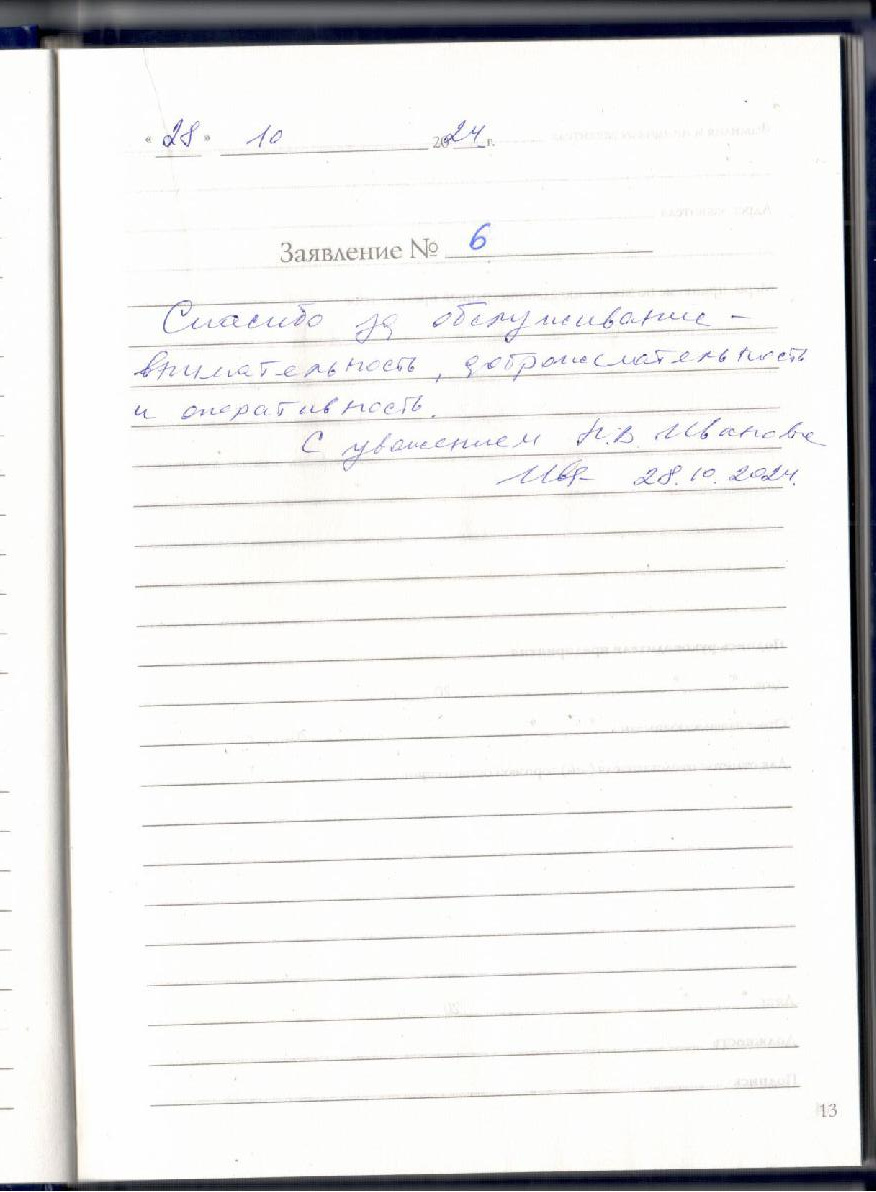 « 28 » 10 2024 г.
Заявление № 6
Спасибо за обслуживание –
внимательность, доброжелательность
и оперативность.
С уважением Н.В. Иванова
28.10.2024.
13